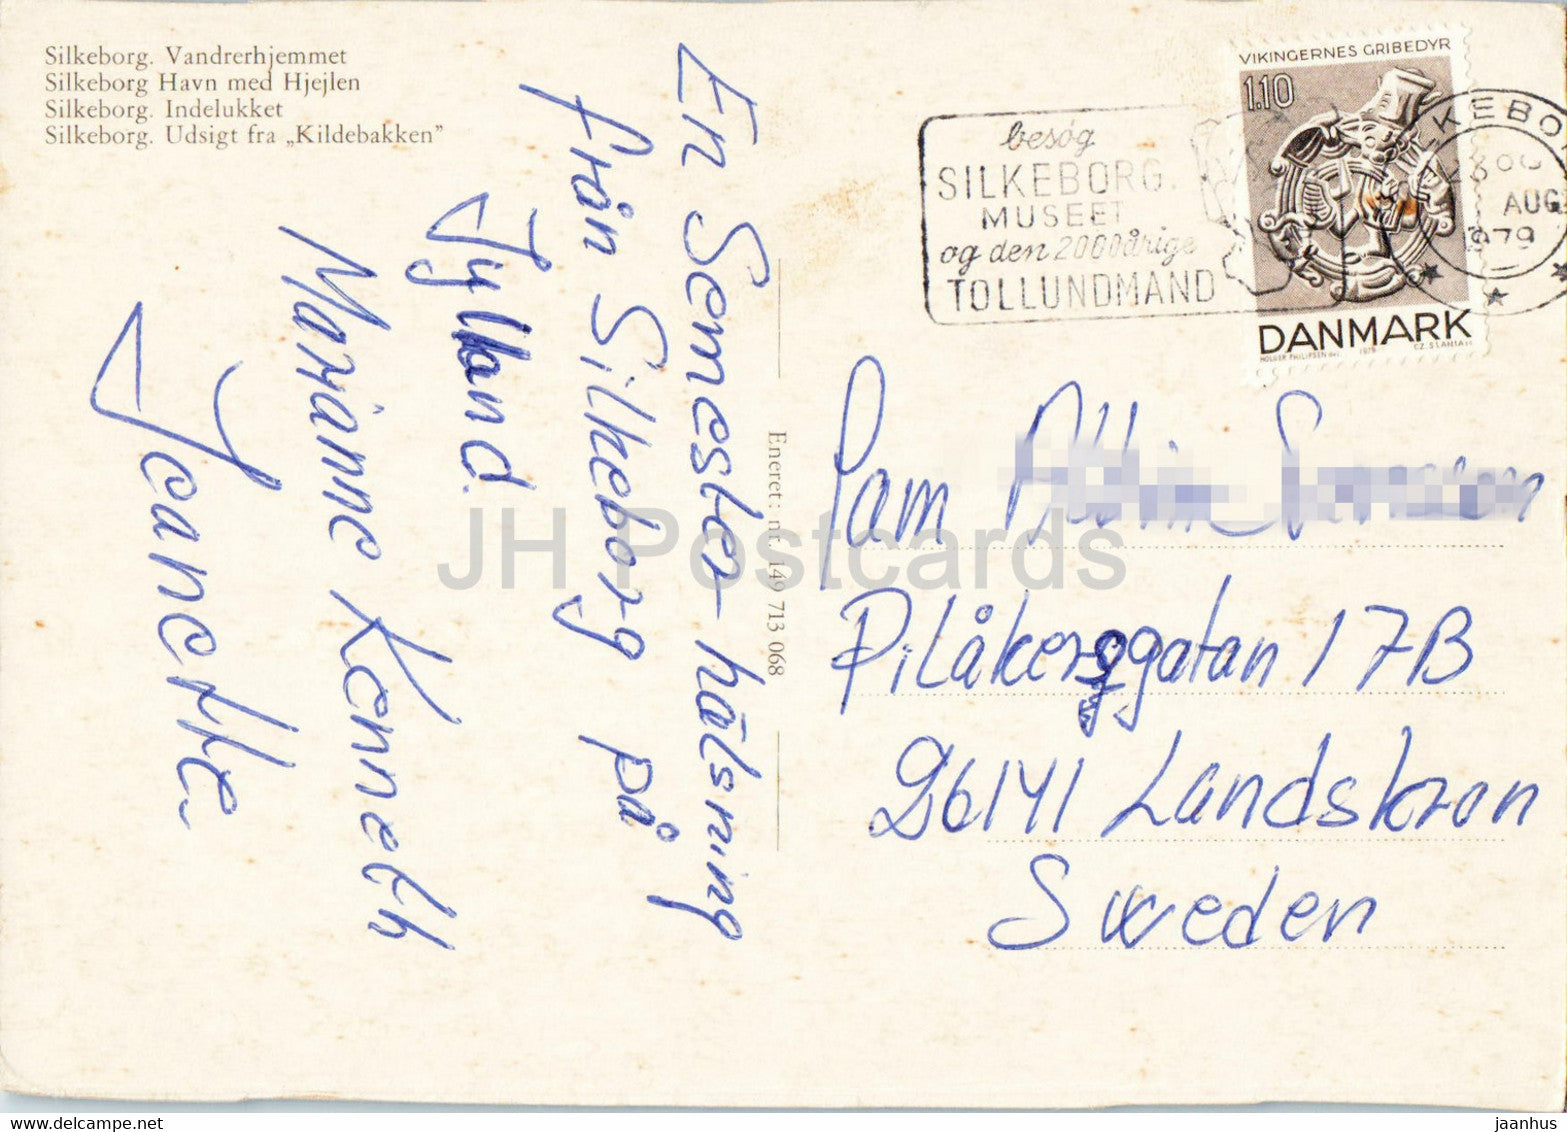 Silkeborg. Vandrerhjemmet
Silkeborg Havn med Hjejlen
Silkeborg. Indelukket
Silkeborg. Udsigt fra „Kildebakken”
En Semester-hälsning
från Silkeborg på
Jylland.
Marianne Kenneth
Jeanette.
Eneret: nr. 149 713 068
besøg
SILKEBORG
MUSEET
og den 2000årige
TOLLUNDMAND
VIKINGERNES GRIBEDYR
110
DANMARK
HOLGER PHILIPSEN del. 1979 CZ. SLANIA sc.
AUG
1979
Fam
Pilåkersgatan 17B
26141 Landskron
Sweden
JH Postcards
jaanhus